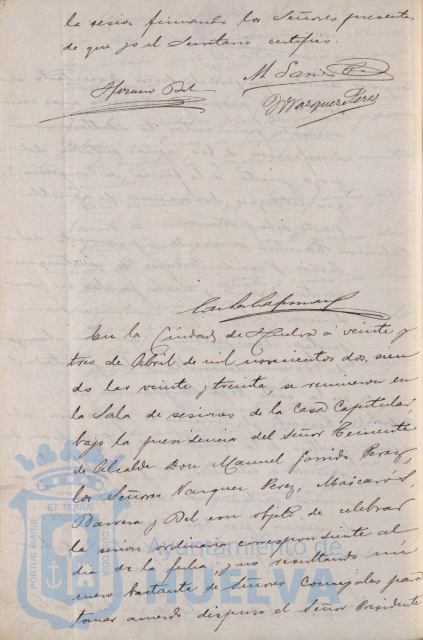 la sesion firmando los Señores presentes
de que yo el Secretario certifico.
M. Garrido P.
Horacio Bel
Vazquez Perez
En la Ciudad de Huelva á veinte y
tres de Abril de mil novecientos dos, sien
do las veinte y treinta, se reunieron en
la Sala de sesiones de la Casa Capitular,
bajo la presidencia del Señor Teniente
de Alcalde Don Manuel Garrido Perez,
los Señores Vazquez Perez,
Barrera y Bel con objeto de celebrar
la sesion ordinaria correspondiente al
dia de la fecha; no resultando nú
mero bastante de Señores Concejales para
tomar acuerdo dispuso el Señor Presidente
Ayuntamiento de
HUELVA
PORTUS MARIS
ET TERRÆ
CUSTODIA